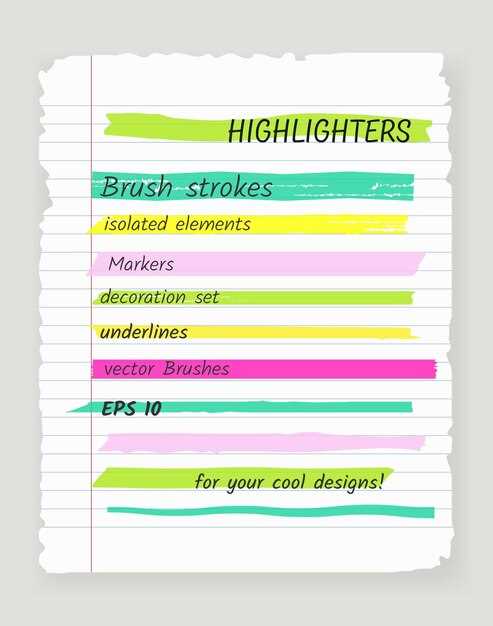 HIGHLIGHTERS
Brush strokes
isolated elements
Markers
decoration set
underlines
vector Brushes
EPS 10
for your cool designs!